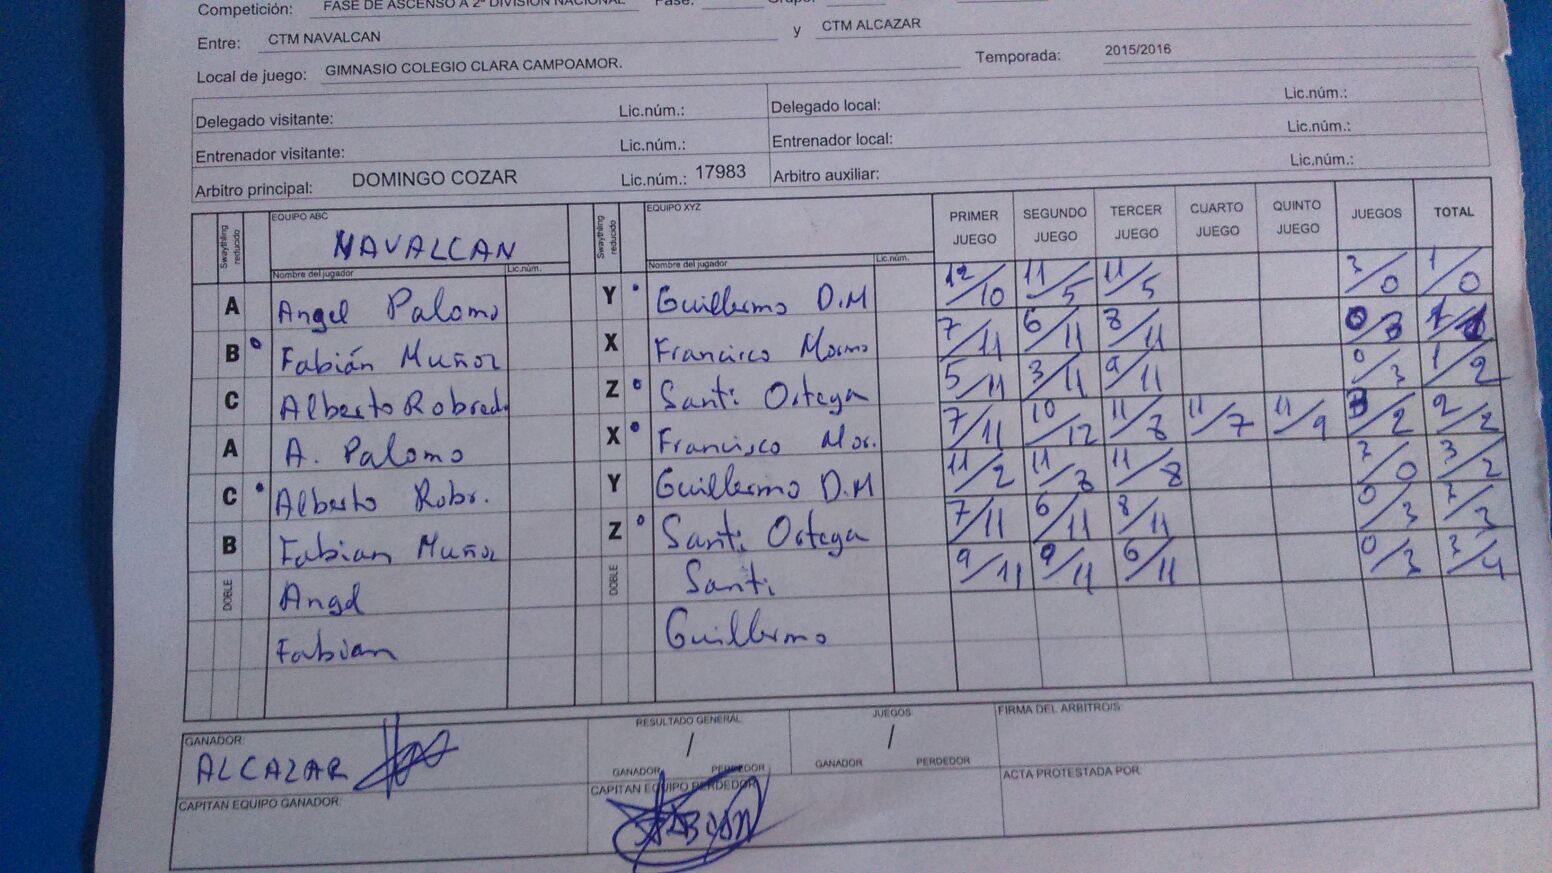 Competición: FASE DE ASCENSO A 2ª DIVISION NACIONAL Fase: Grupo:
Entre: CTM NAVALCAN y CTM ALCAZAR
Local de juego: GIMNASIO COLEGIO CLARA CAMPOAMOR. Temporada: 2015/2016
Delegado visitante: Lic.núm.: Delegado local: Lic.núm.:
Entrenador visitante: Lic.núm.: Entrenador local: Lic.núm.:
Arbitro principal: DOMINGO COZAR Lic.núm.: 17983 Arbitro auxiliar: Lic.núm.:
Swaythling reducido EQUIPO ABC NAVALCAN Swaythling reducido EQUIPO XYZ PRIMER JUEGO SEGUNDO JUEGO TERCER JUEGO CUARTO JUEGO QUINTO JUEGO JUEGOS TOTAL
Nombre del jugador Lic.núm. Nombre del jugador Lic.núm.
A Angel Palomo Y Guillermo D.M 12/10 11/5 11/5 3/0 1/0
B Fabián Muñoz X Francisco 7/11 6/11 8/11 0/3 1/1
C Alberto Robredo Z Santi Ortega 5/11 3/11 9/11 0/3 1/2
A A. Palomo X Francisco Mor. 7/11 10/12 11/8 11/7 11/9 3/2 2/2
C Alberto Robr. Y Guillermo D.M 11/2 11/8 11/8 3/0 3/2
B Fabian Muñoz Z Santi Ortega 7/11 6/11 8/11 0/3 3/3
DOBLE Angel DOBLE Santi 9/11 9/11 6/11 0/3 3/4
Fabian Guillermo
GANADOR: ALCAZAR RESULTADO GENERAL / GANADOR PERDEDOR JUEGOS / GANADOR PERDEDOR FIRMA DEL ARBITRO/S:
CAPITAN EQUIPO GANADOR: CAPITAN EQUIPO PERDEDOR: FABIAN ACTA PROTESTADA POR: